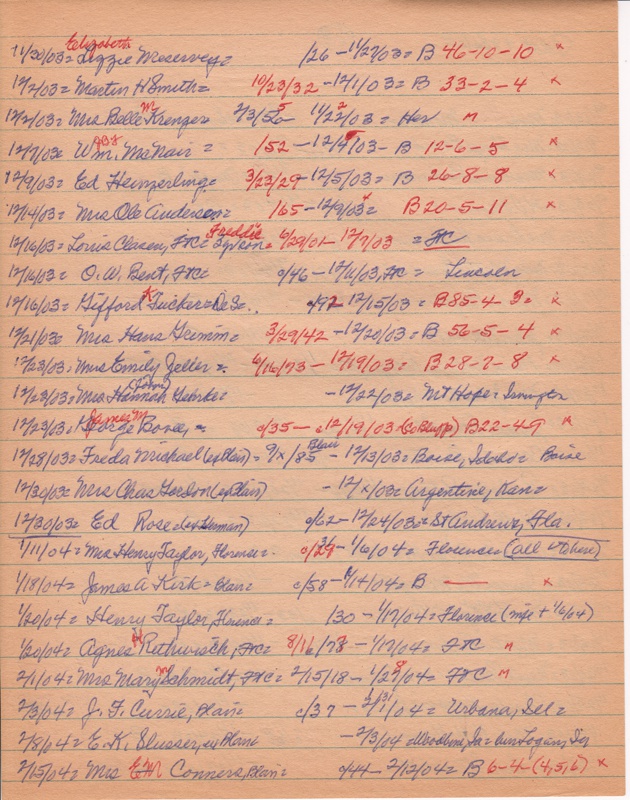 11/30/03= Elizabeth Lizzie Meservey= /26 - 11/27/03= B 46-10-10 x
12/2/03= Martin H Smith= 10/23/32 - 12/1/03= B 33-2-4 x
12/2/03= Mrs Belle M Krenger 2/3/56 11/22/03= Her M
12/7/03= Wm. McNair = /52 - 12/4/03- B 12-6-5 x
12/9/03= Ed Heimperling= 3/23/29 - 12/5/03= B 26-8-8 x
12/14/03= Mrs Ole Anderson= /65 - 12/9/03= B 20-5-11 x
12/16/03= Louis Clasen, FTC= Freddie 6/29/01 - 12/7/03 = FTC
12/16/03= O.W. Bent, FTC= c/46 - 12/11/03, FTC = Lincoln
12/16/03= Gifford K Tucker= De S=.. c/92 12/15/03= B 85-4-3= x
12/21/03= Mrs Hans Grimm= 3/29/42 - 12/20/03= B 56-5-4 x
12/23/03. Mrs Emily Zeller= 6/16/73 - 12/19/03= B 28-7-8 x
12/23/03= Mrs Hannah (John) Gehrke= - 12/22/03= Mt Hope= Irvington
12/23/03= James M George = c/35 - c 12/19/03 (Co Bluffs) B 22-49 x
12/28/03= Freda Michael (ex Blair) = 9/x/85 Blair - 12/13/03= Boise, Idaho= Boise
12/30/03= Mrs Chas Gordon (ex Blair) - 12/x/03= Argentine, Kan=
12/30/03= Ed Rose (ex Herman) c/62 - 12/24/03= St Andrews, Fla.
1/11/04= Mrs Henry Taylor, Florence= c/29 - 1/6/04= Florence (all others)
1/18/04= James A Kirk= Blair= c/58 - 1/14/04= B — x
1/20/04= Henry Taylor, Florence= 130 - 1/17/04= Florence (wife + 1/6/04)
1/20/04= Agnes H Rethwisch, FTC= 8/16/78 - 1/17/04= FTC M
2/1/04= Mrs Mary M Schmidt, FTC= 2/15/18 - 1/28/04= FTC M
2/3/04= J. F. Currie, Blair= c/37 - 1/31/04= Urbana, Ill=
2/8/04= E.K. Slusser, ex Blair - 2/3/04= Woodbine, Ia= bur Logan, Ia
2/15/04= Mrs EM Conners, Blair= c/44 - 2/12/04= B 6-4-(4,5,6) x